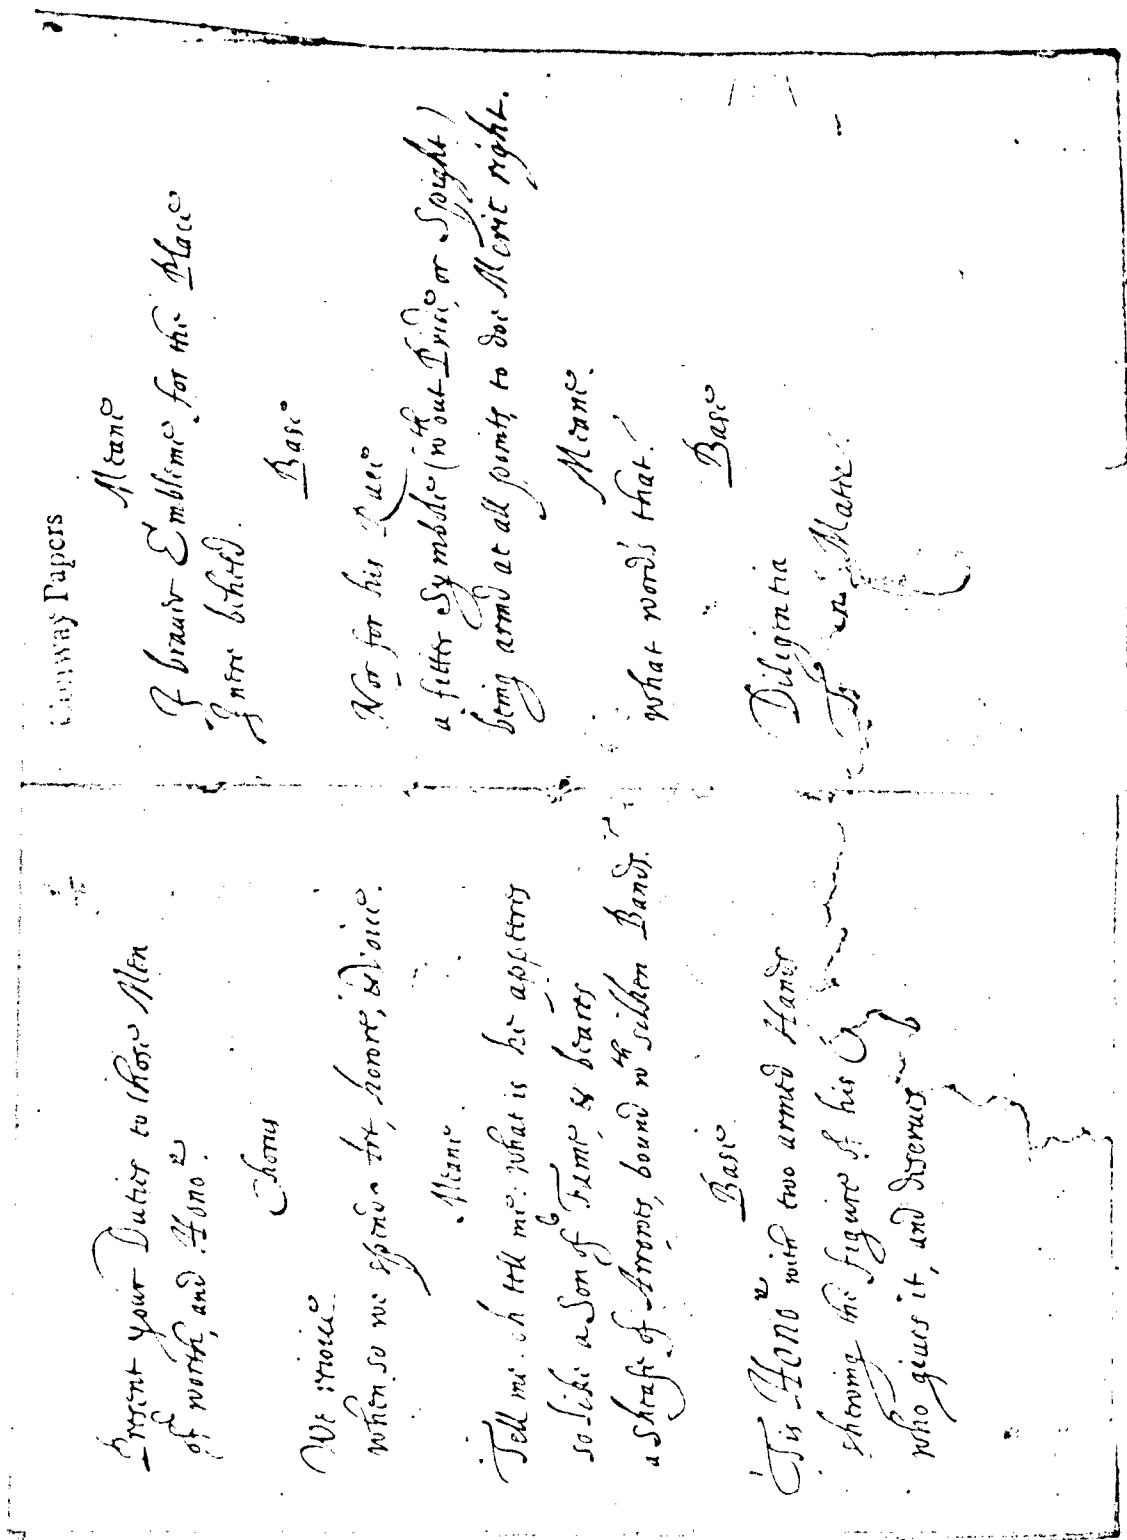 Present your Duties to those Men
of worth, and Honor.
Chorus
We reioice
when so we spend honore, & voice.
Meane.
Tell me. oh tell me. what is he appeers
so like a Son of Fame, & beares
a Sheafe of Arrowes, bound wth silken Bands.
Base
'Tis Honor with two armed Hands
shewing the figure of his
who giues it, and deserues
Conway Papers
Meane
A brauer Embleme for the Place
I nere beheld.
Base
Nor for his Race
a fitter Symbole (wth out Pride, or Spight)
being armd at all points, to doe Merit right.
Meane.
What word's that?
Base
Diligentia
Matie